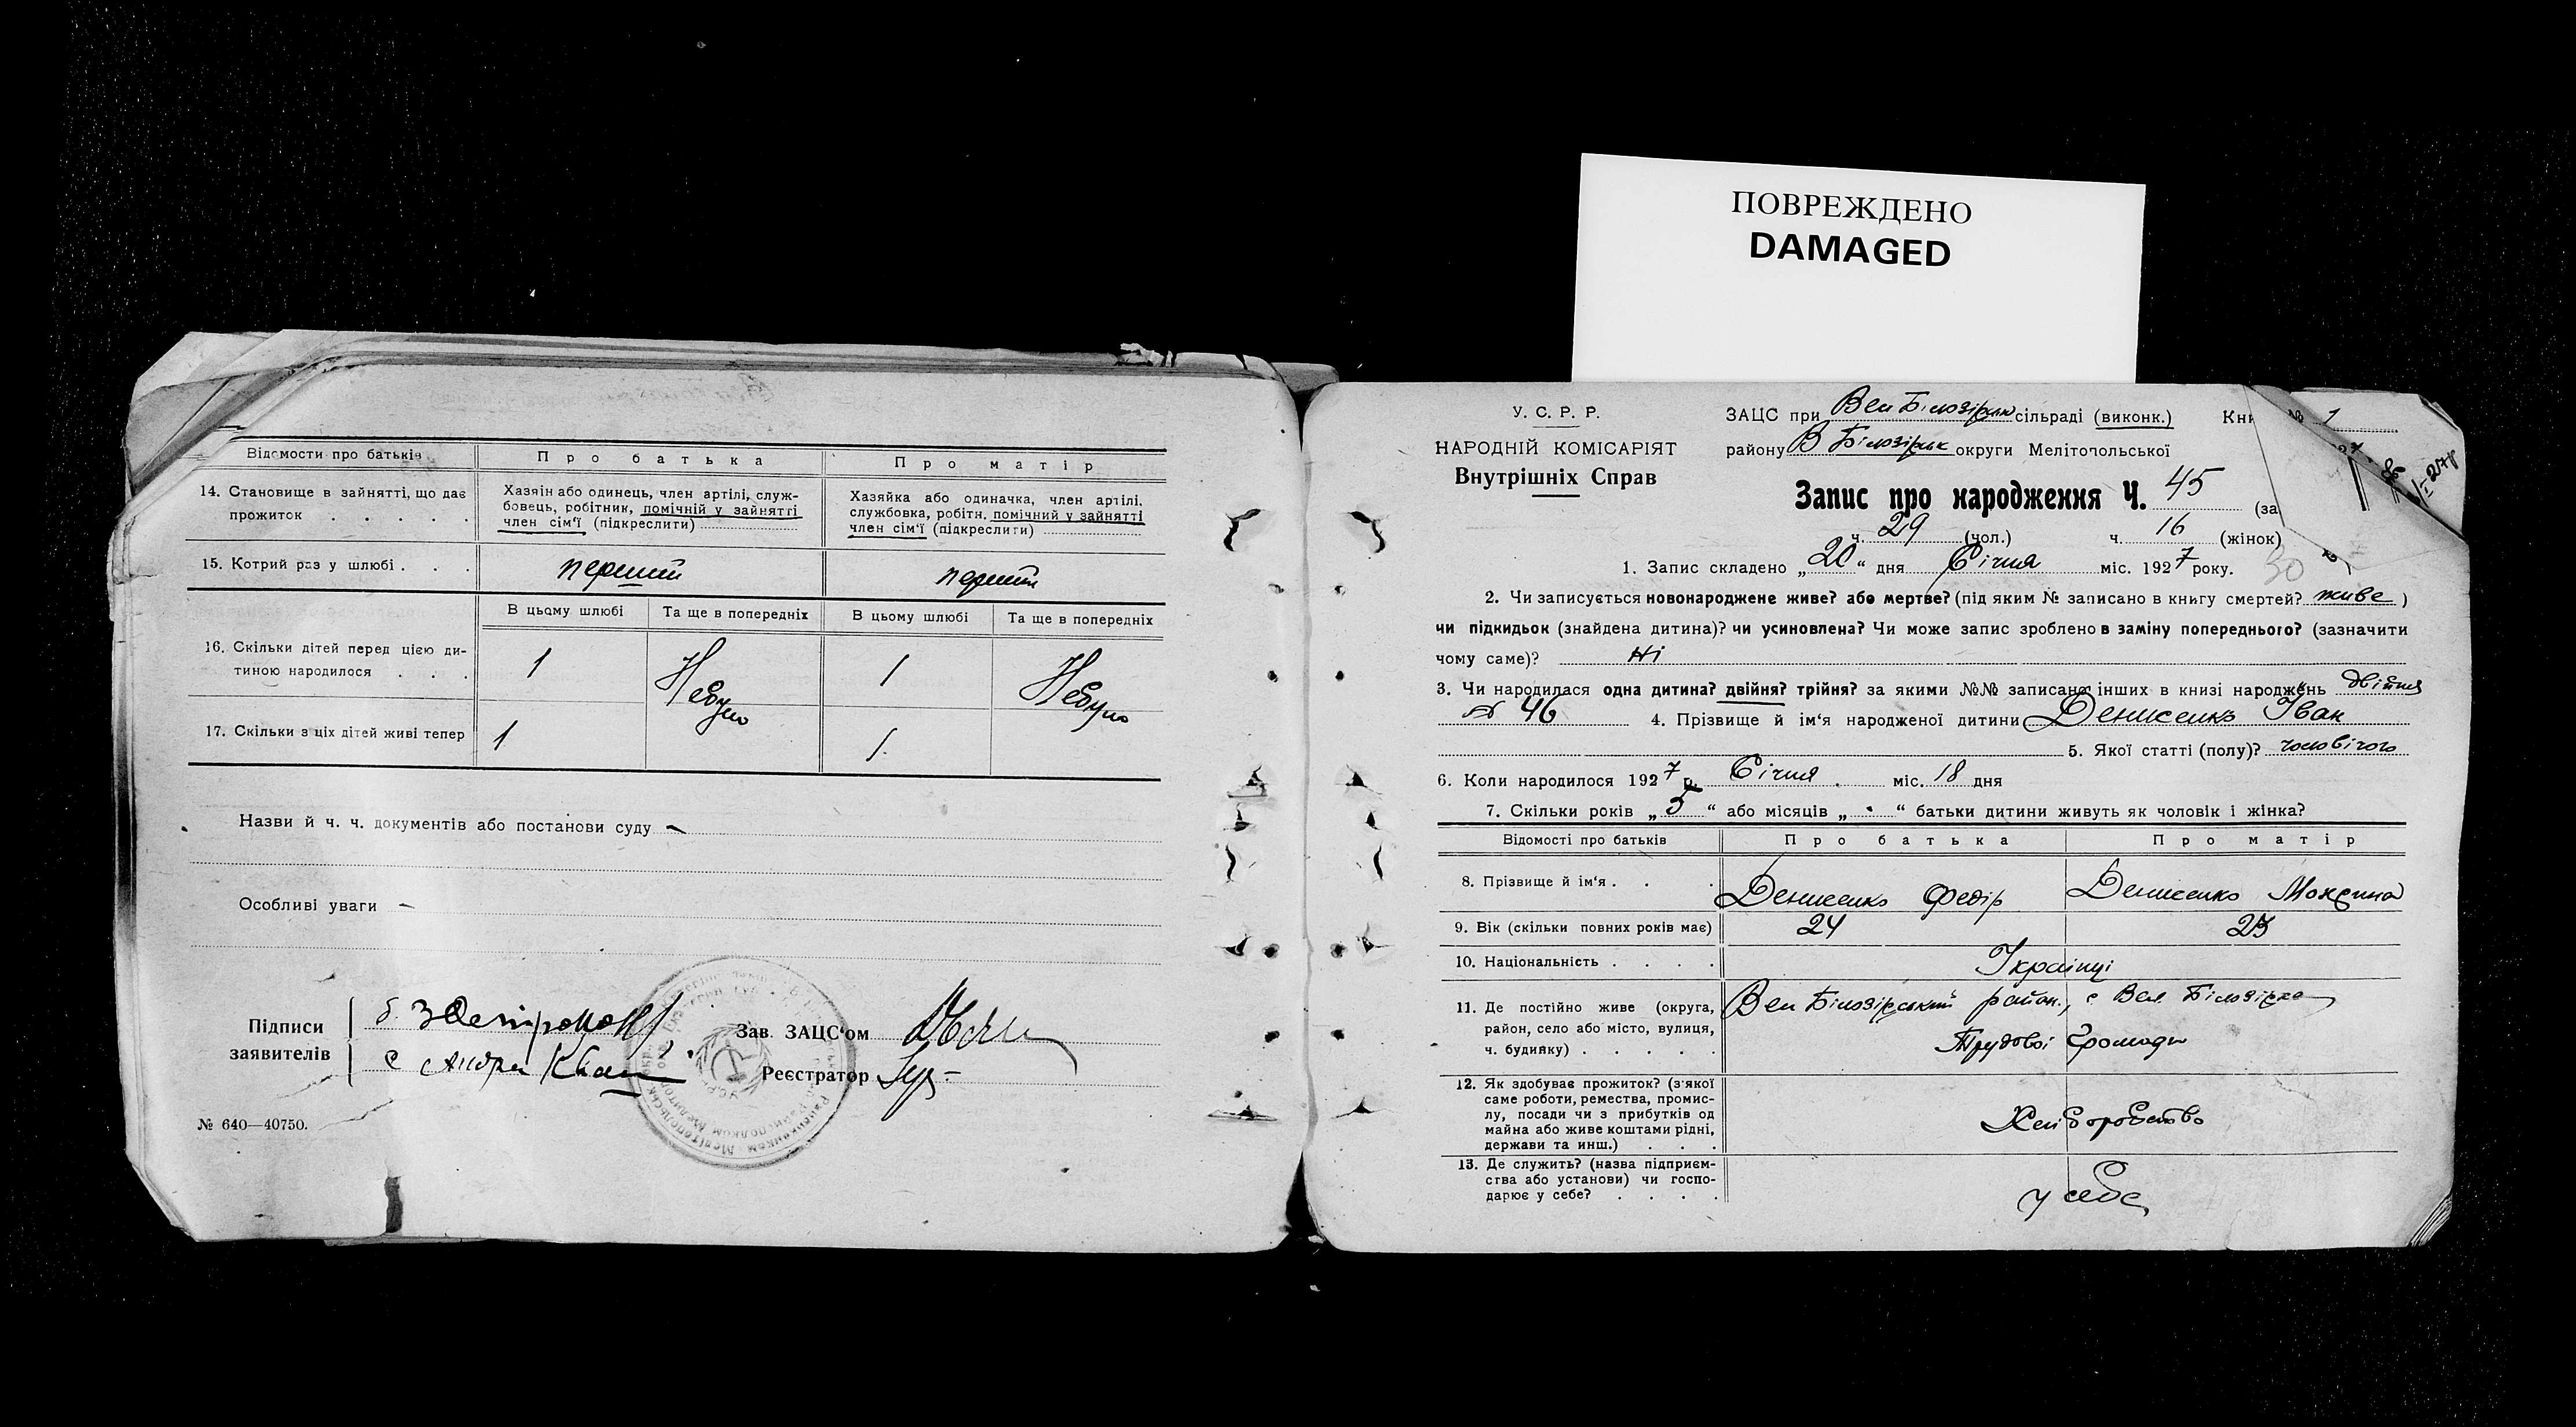 ПОВРЕЖДЕНО
DAMAGED
Відомости про батьків
Про батька
Про матір
14. Становище в зайнятті, що дає
прожиток . . . . .
Хазяїн або одинець, член артілі, служ-
бовець, робітник, помічній у зайнятті
член сім'ї (підкреслити)
Хазяйка або одиначка, член артілі,
службовка, робітн. помічний у зайнятті
член сім'ї (підкреслити)
15. Котрий раз у шлюбі . . .
перший
перший
В цьому шлюбі
Та ще в попередніх
В цьому шлюбі
Та ще в попередніх
16. Скільки дітей перед цією ди-
тиною народилося . . .
1
Небуло
1
Небуло
17. Скільки з ціх дітей живі тепер
1
1
Назви й ч. ч. документів або постанови суду —
Особливі уваги —
Підписи
заявителів
Зав. ЗАЦС'ом
Реєстратор
№ 640—40750.
У. С. Р. Р.
НАРОДНІЙ КОМІСАРІЯТ
Внутрішніх Справ
ЗАЦС при Вел Білозірськ сільраді (виконк.) Кни № 1
району В Білозірськ округи Мелітопольської
Запис про народження Ч. 45 (за
ч. 29 (чол.) ч. 16 (жінок)
30
1. Запис складено „20“ дня Січня міс. 1927 року.
2. Чи записується новонароджене живе? або мертве? (під яким № записано в книгу смертей? живе )
чи підкидьок (знайдена дитина)? чи усиновлена? Чи може запис зроблено в заміну попереднього? (зазначити
чому саме)? Ні
3. Чи народилася одна дитина? двійня? трійня? за якими №№ записано інших в книзі народжень двійня
№ 46 4. Прізвище й ім'я народженої дитини Денисенко Іван
5. Якої статті (полу)? чоловічого
6. Коли народилося 1927 р. Січня міс. 18 дня
7. Скільки років „5“ або місяців „-“ батьки дитини живуть як чоловік і жінка?
Відомості про батьків
Про батька
Про матір
8. Прізвище й ім'я . . .
Денисенко Федір
Денисенко
9. Вік (скільки повних років має)
24
10. Національність . . . .
Українці
11. Де постійно живе (округа,
район, село або місто, вулиця,
ч. будинку) . . . . .
Вел Білозірський район., с Вел. Білозірка
Трудової Громади
12. Як здобуває прожиток? (з'якої
саме роботи, ремества, промис-
лу, посади чи з прибутків од
майна або живе коштами рідні,
держави та инш.) . . .
Хліборобство
13. Де служить? (назва підприєм-
ства або установи) чи госпо-
дарює у себе? . . . .
у себе